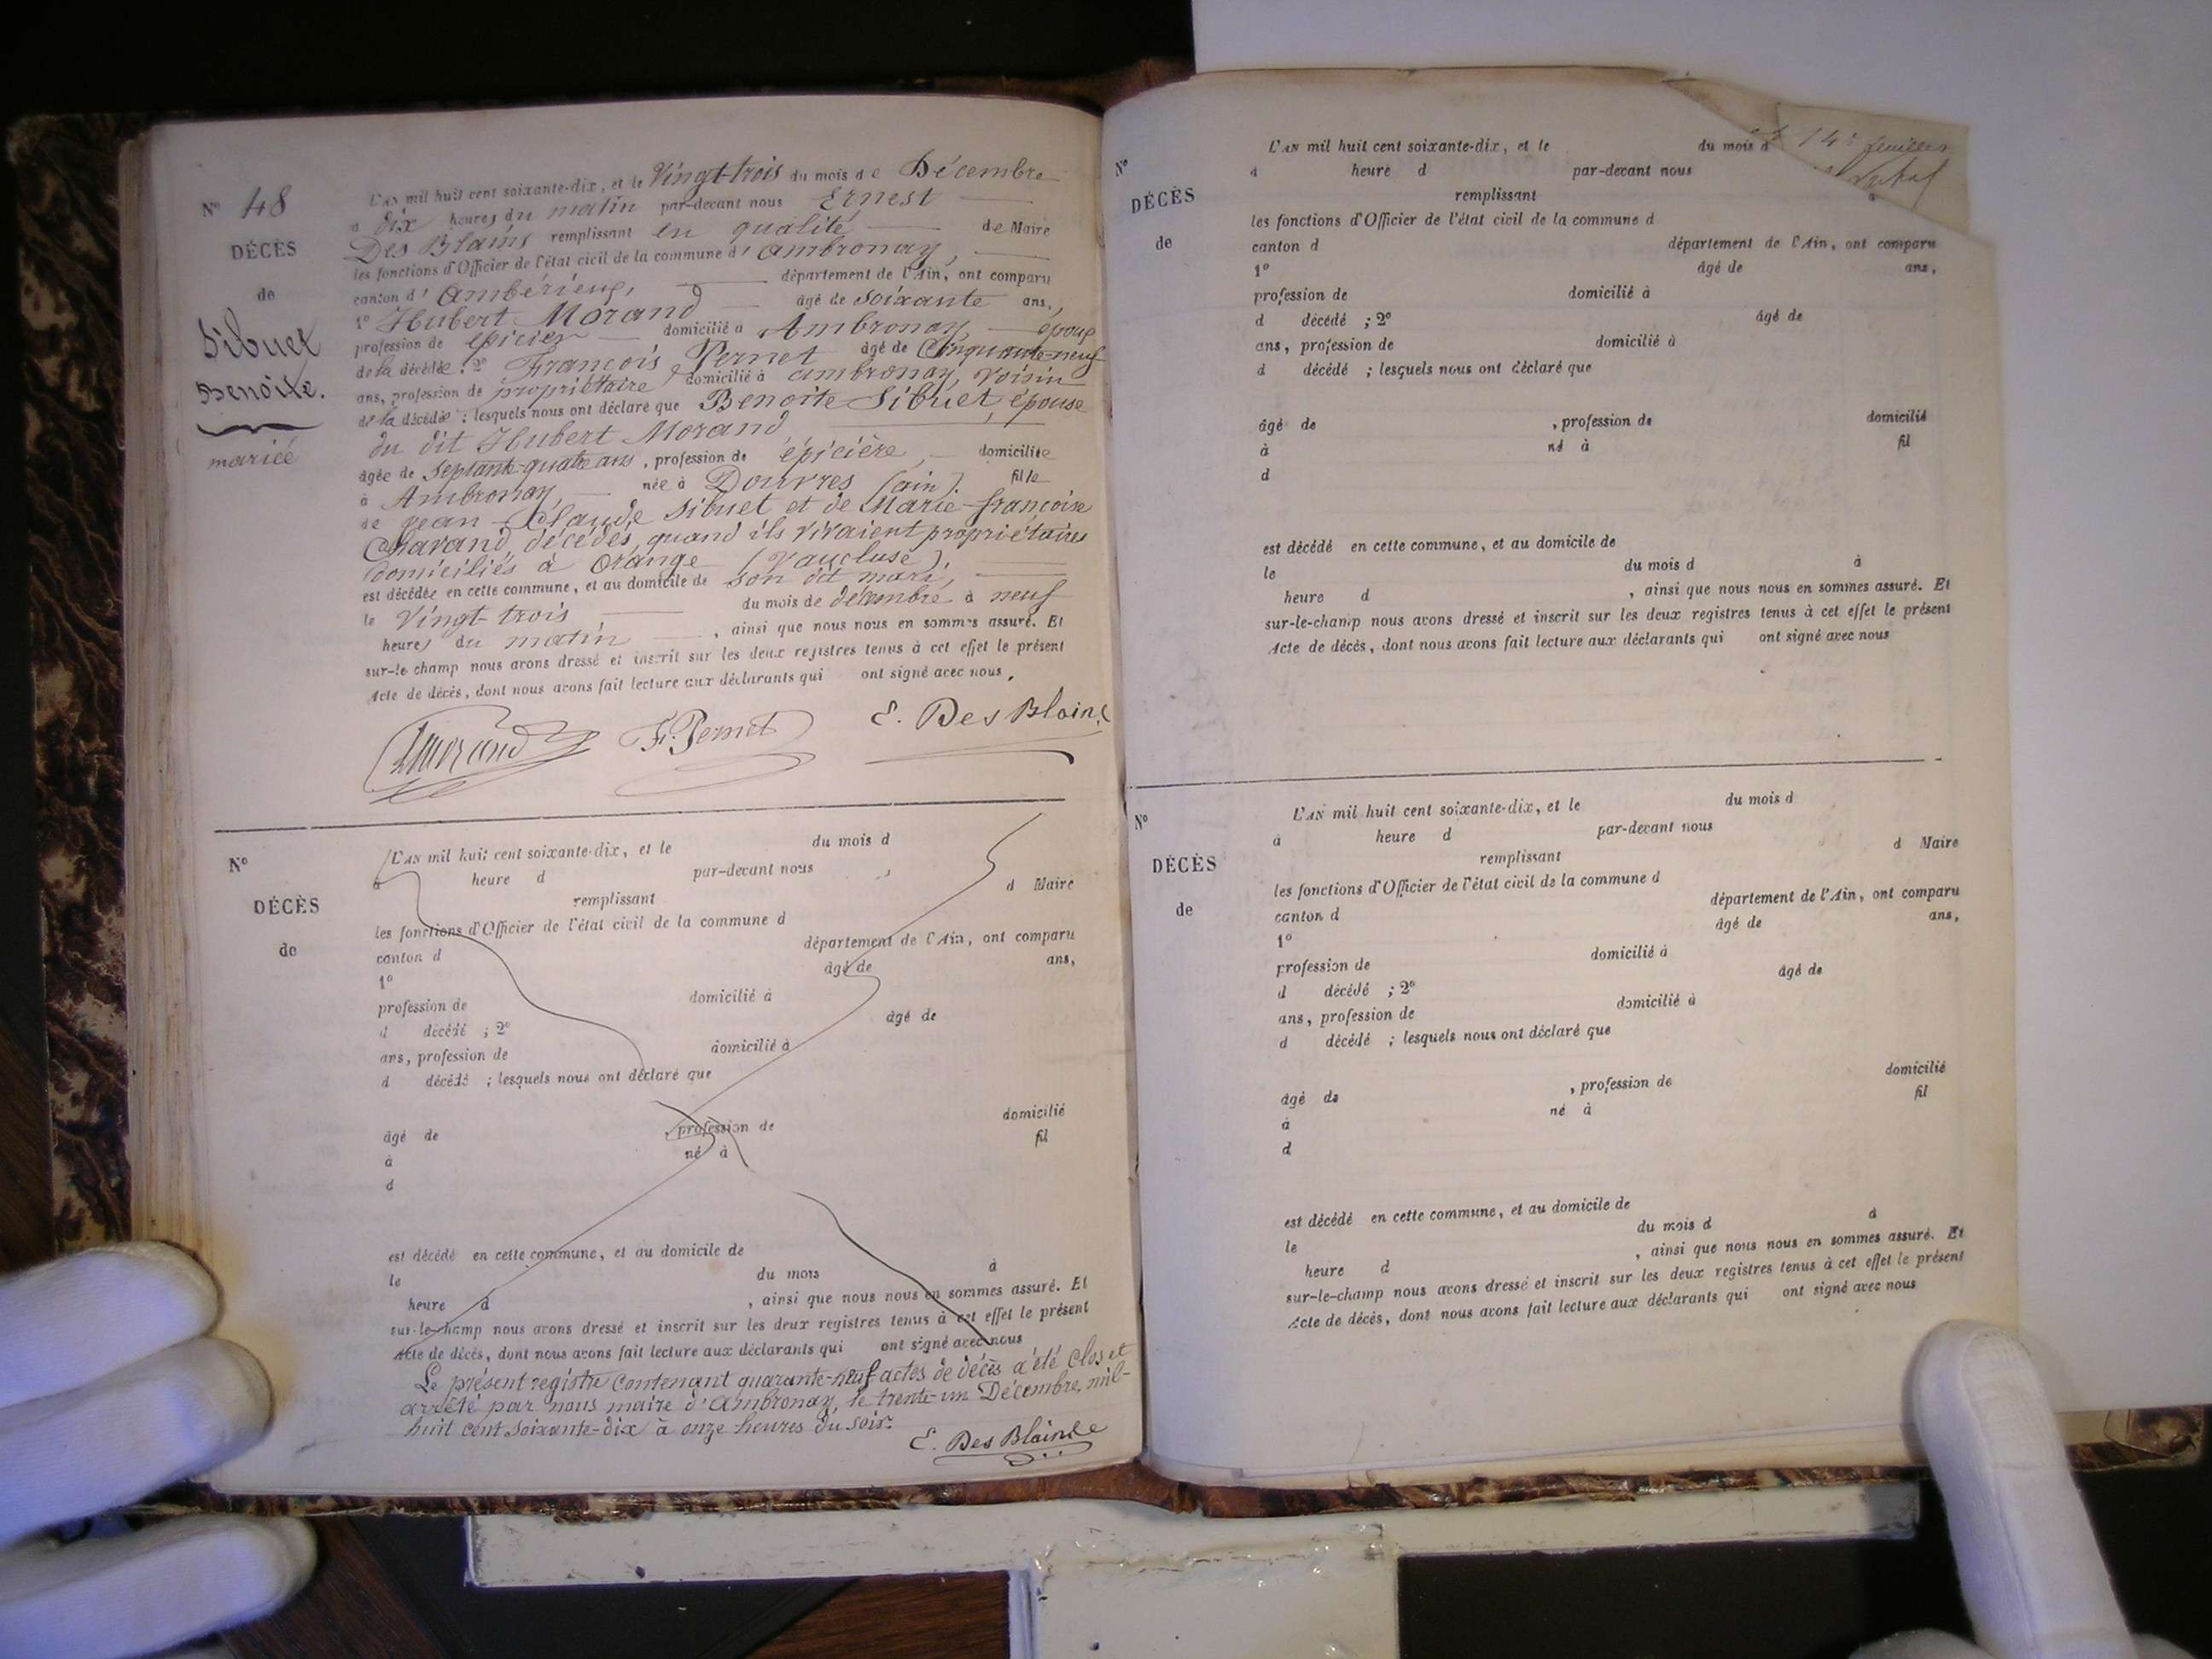 N° 48
DÉCÈS
de
Sibuet
Benoite.
mariée
L'AN mil huit cent soixante-dix, et le Vingt-trois du mois de Décembre
à dix heures du matin par-devant nous Ernest
Des Blains remplissant en qualité de Maire
les fonctions d'Officier de l'état civil de la commune d'Ambronay,
canton d'Ambérieux, département de l'Ain, ont comparu
1° Hubert Morand âgé de soixante ans,
profession de épicier domicilié à Ambronay, époux
de la décédée ; 2° François Pernet âgé de Cinquante-neuf
ans, profession de propriétaire domicilié à ambronay, voisin
de la décédée ; lesquels nous ont déclaré que Benoite Sibuet, épouse
du dit Hubert Morand
âgée de Septante-quatre ans, profession de épicière, domiciliée
à Ambronay, née à Douvres (ain). fille
de jean-Claude Sibuet et de Marie-françoise
Charand, décédés, quand ils vivaient propriétaires
domiciliés à Orange (Vaucluse),
est décédée en cette commune, et au domicile de son dit mari,
le Vingt-trois du mois de décembre à neuf
heures du matin, ainsi que nous nous en sommes assuré. Et
sur-le champ nous avons dressé et inscrit sur les deux registres tenus à cet effet le présent
Acte de décès, dont nous avons fait lecture aux déclarants qui ont signé avec nous.
Morand F. Pernet E. Des Blains
N°
DÉCÈS
de
L'AN mil huit cent soixante-dix, et le du mois d
à heure d par-devant nous
remplissant d Maire
les fonctions d'Officier de l'état civil de la commune d
canton d département de l'Ain, ont comparu
1° âgé de ans,
profession de domicilié à
d décédé ; 2° âgé de
ans, profession de domicilié à
d décédé ; lesquels nous ont déclaré que
âgé de , profession de domicilié
à né à fil
d
est décédé en cette commune, et au domicile de
le du mois à
heure d , ainsi que nous nous en sommes assuré. Et
sur-le-champ nous avons dressé et inscrit sur les deux registres tenus à cet effet le présent
Acte de décès, dont nous avons fait lecture aux déclarants qui ont signé avec nous
Le présent registre contenant quarante-neuf actes de décès a été clos et
arrêté par nous maire d'Ambronay, le trente-un Décembre, mil-
huit cent soixante-dix à onze heures du soir.
E. Des Blains
N°
DÉCÈS
de
L'AN mil huit cent soixante-dix, et le du mois d
à heure d par-devant nous
remplissant
les fonctions d'Officier de l'état civil de la commune d
canton d département de l'Ain, ont comparu
1° âgé de ans,
profession de domicilié à
d décédé ; 2° âgé de
ans, profession de domicilié à
d décédé ; lesquels nous ont déclaré que
âgé de , profession de domicilié
à né à fil
d
est décédé en cette commune, et au domicile de
le du mois d à
heure d , ainsi que nous nous en sommes assuré. Et
sur-le-champ nous avons dressé et inscrit sur les deux registres tenus à cet effet le présent
Acte de décès, dont nous avons fait lecture aux déclarants qui ont signé avec nous
N°
DÉCÈS
de
L'AN mil huit cent soixante-dix, et le du mois d
à heure d par-devant nous
remplissant d Maire
les fonctions d'Officier de l'état civil de la commune d
canton d département de l'Ain, ont comparu
1° âgé de ans,
profession de domicilié à
d décédé ; 2° âgé de
ans, profession de domicilié à
d décédé ; lesquels nous ont déclaré que
âgé de , profession de domicilié
à né à fil
d
est décédé en cette commune, et au domicile de
le du mois d à
heure d , ainsi que nous nous en sommes assuré. Et
sur-le-champ nous avons dressé et inscrit sur les deux registres tenus à cet effet le présent
Acte de décès, dont nous avons fait lecture aux déclarants qui ont signé avec nous